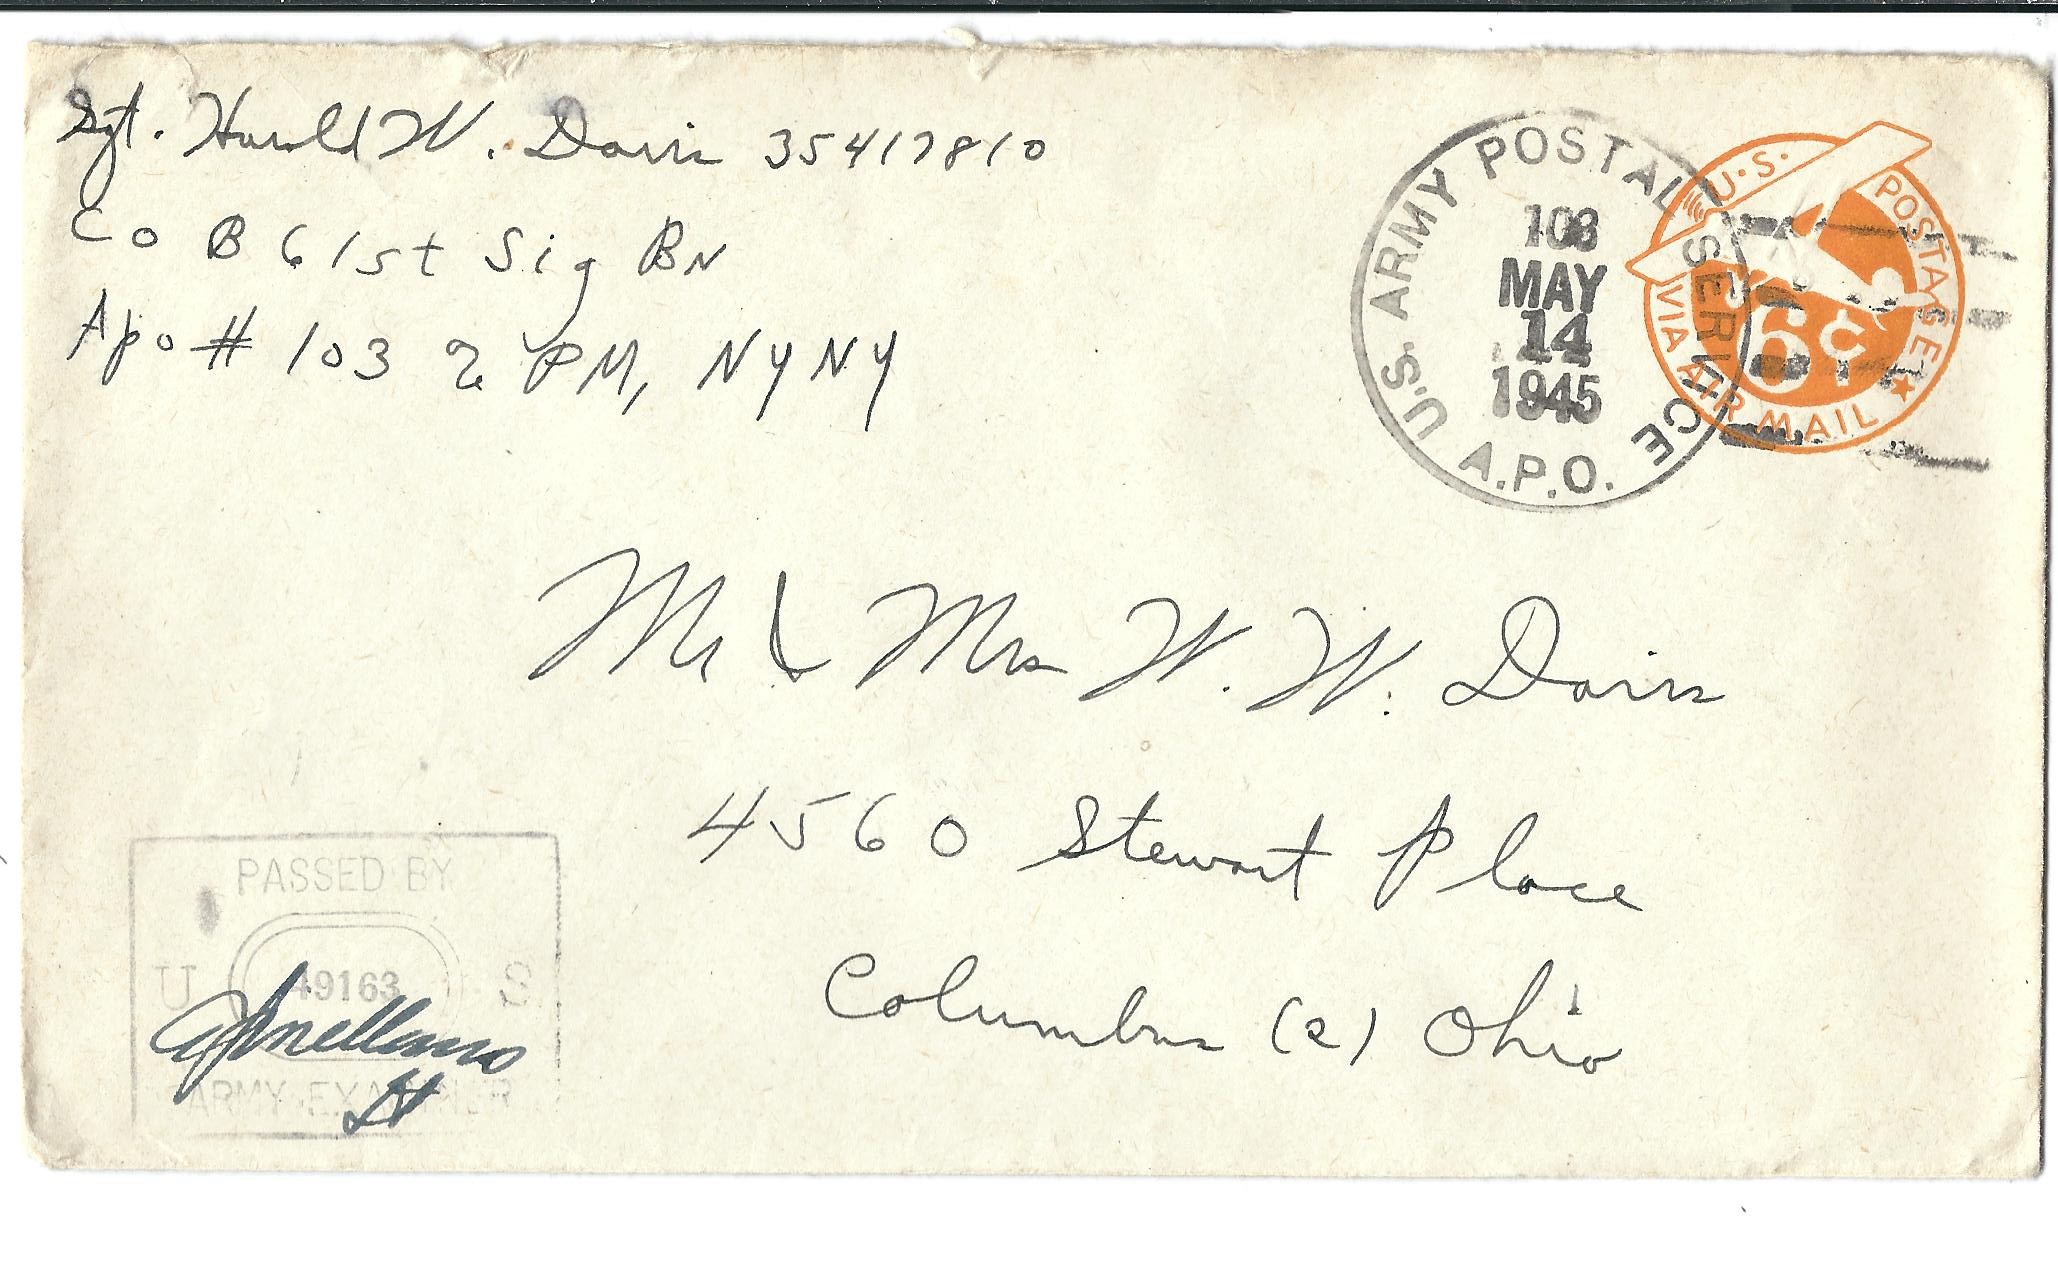 Sgt. Harold W. Davis 35417810
Co B 61st Sig Bn
Apo # 103 % PM, NY NY
U.S. ARMY POSTAL SERVICE
103
MAY
14
1945
A.P.O.
U.S. POSTAGE
6¢
VIA AIR MAIL
Mr & Mrs W. W. Davis
4560 Stewart Place
Columbus (2) Ohio
PASSED BY
U 49163 S
ARMY EXAMINER